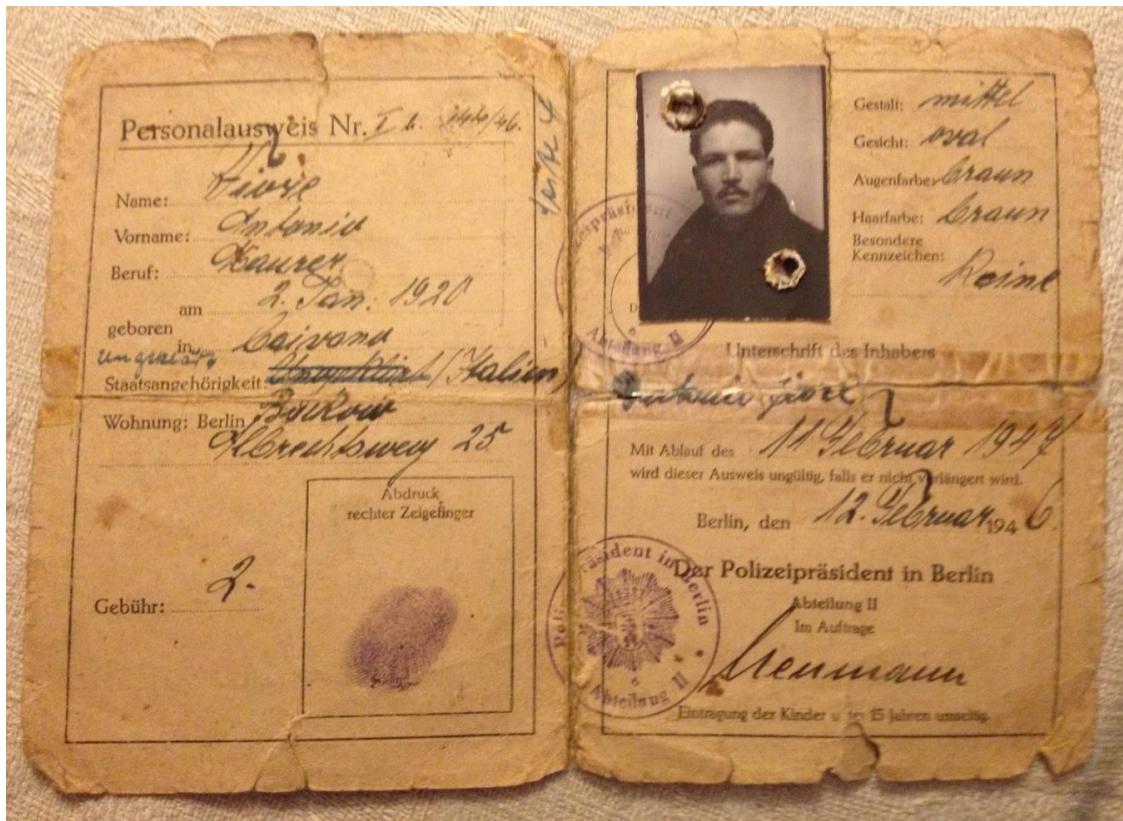 Personalausweis Nr. I b. 344/46.
Name: Fiore
Vorname: Antonio
Beruf: Maurer
am 2. Jan. 1920
geboren
in Caivano
ungeklärt
Staatsangehörigkeit: Ungeklärt / Italien
Wohnung: Berlin Buckow
Albrechtsweg 25
Abdruck
rechter Zeigefinger
Gebühr: 2.-
Seite 4
Gestalt: mittel
Gesicht: oval
Augenfarbe: braun
Haarfarbe: braun
Besondere
Kennzeichen: Keine
Abteilung II
Unterschrift des Inhabers
Antonio Fiore
Mit Ablauf des 11 Februar 1947
wird dieser Ausweis ungültig, falls er nicht verlängert wird.
Berlin, den 12. Februar 1946.
Der Polizeipräsident in Berlin
Abteilung II
Im Auftrage
Neumann
Eintragung der Kinder unter 15 Jahren umseitig.
Polizeipräsident in Berlin
Abteilung II